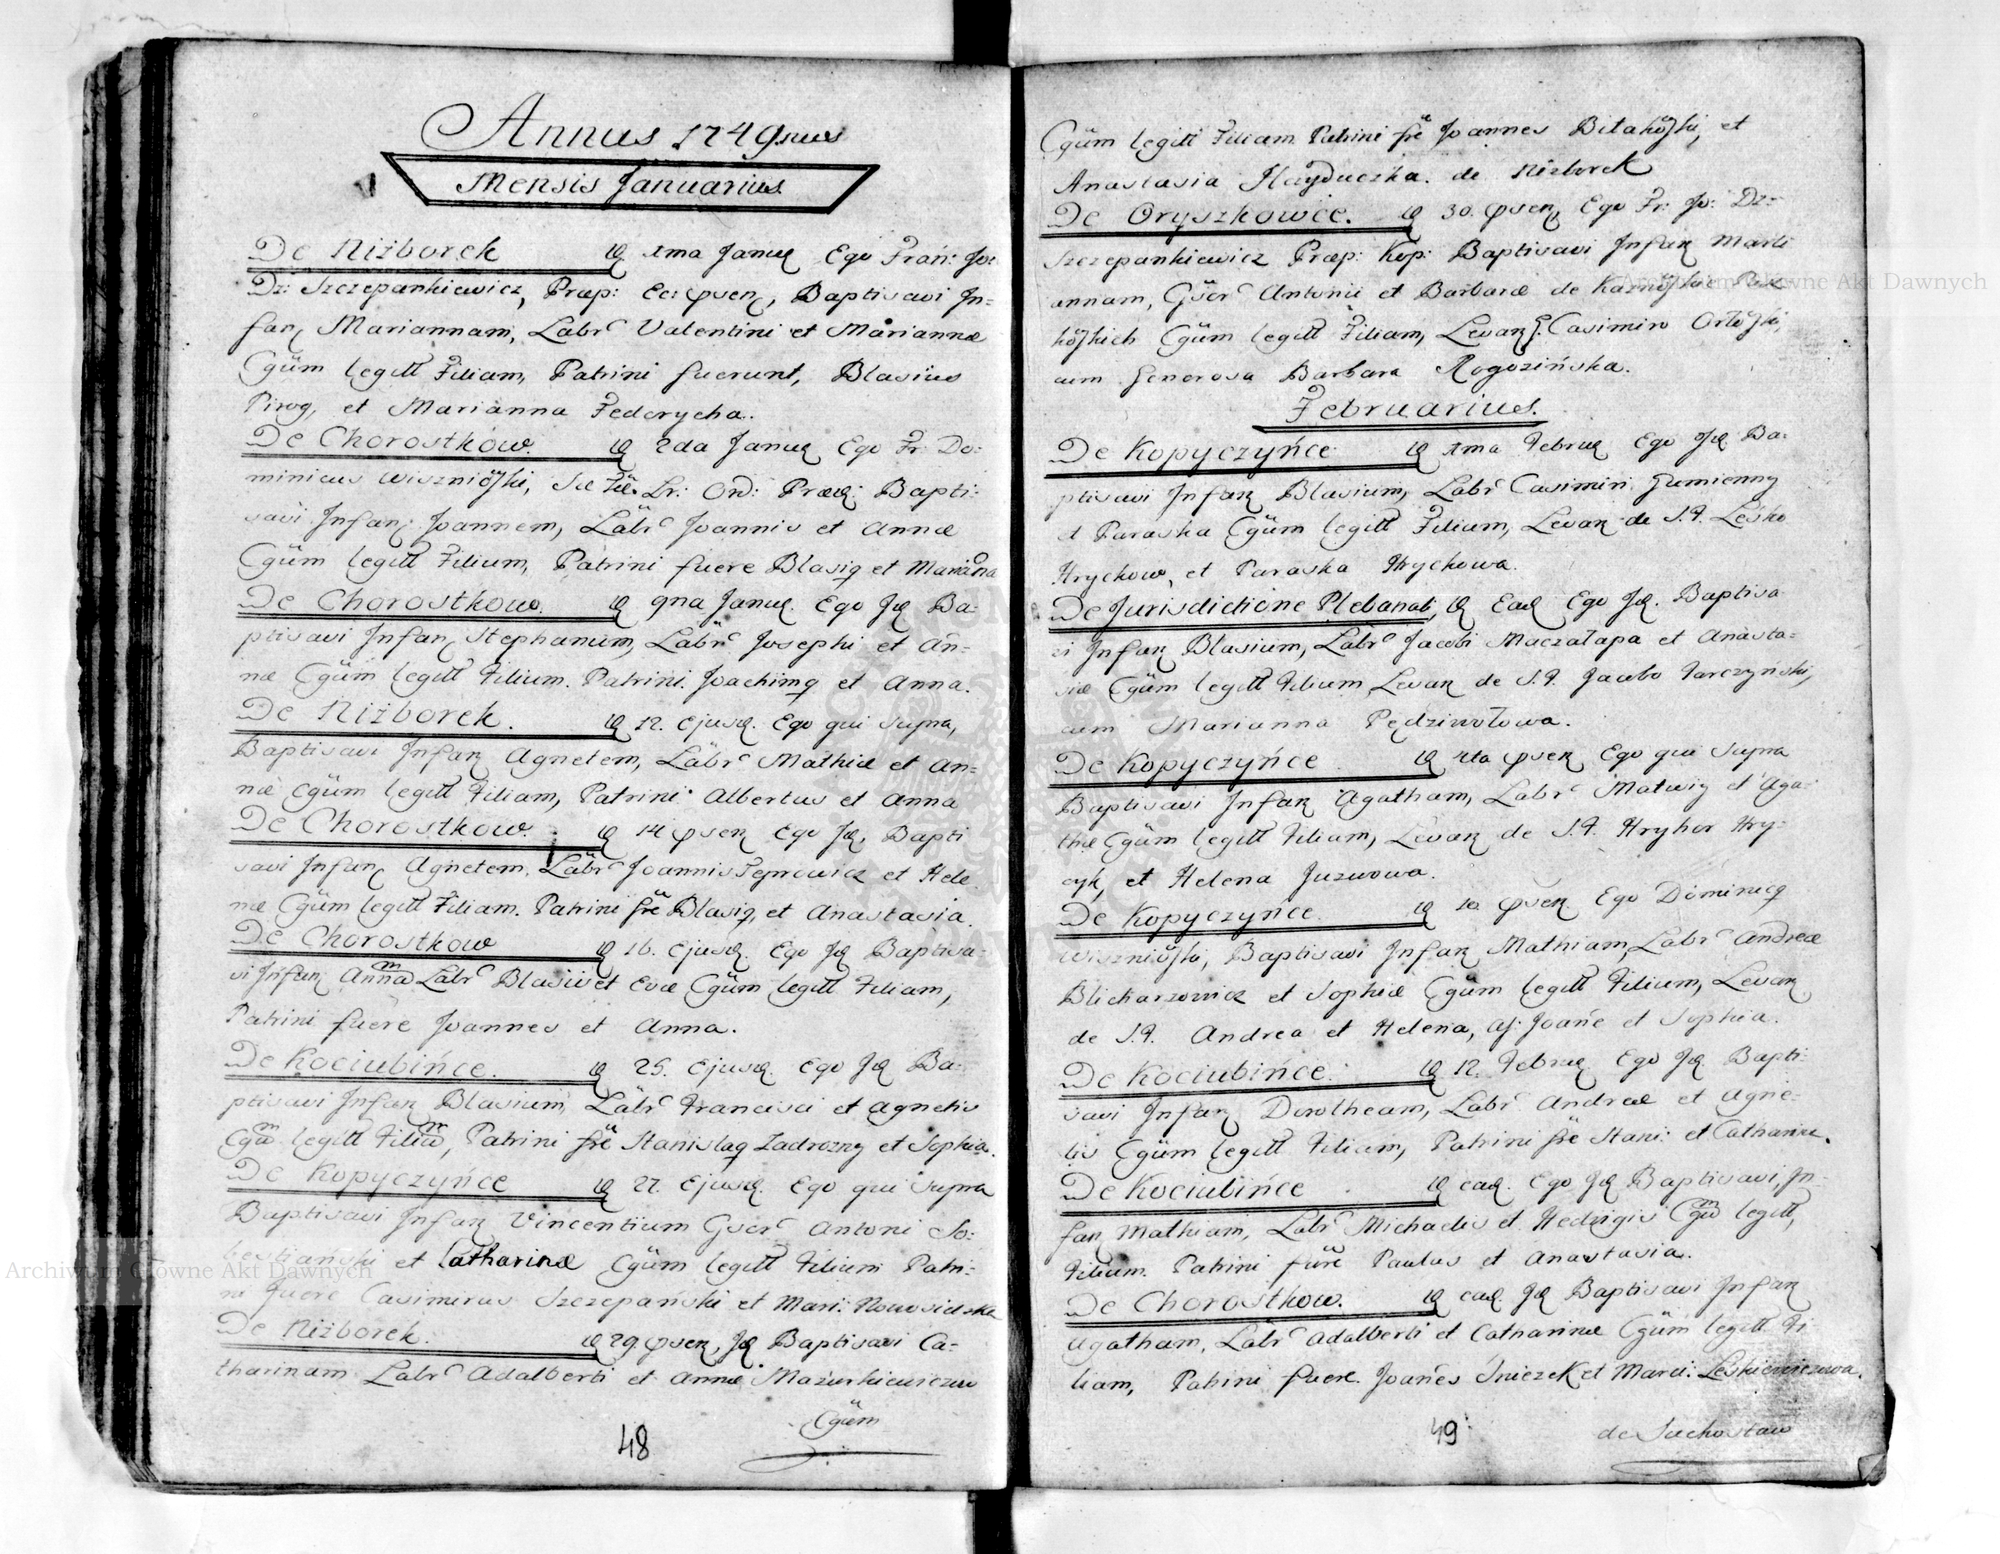 Annus 1749nus
Mensis Januarius
De Niżborek 1ma Januar Ego Fran: Jos:
Dz: Szczepankiewicz, Præp: Ec: Baptisavi In=
fan Mariannam, Labr Valentini et Mariannæ
Cgüm legitt Filiam, Patrini fuerunt, Blasius
Pirog, et Marianna Fedorycha.
De Chorostkow. 2da Januar Ego Fr: Do:
minicus Wiszniöski, Lr: Ord: Præd: Bapti:
savi Infan Joannem, Labr Joannis et Annæ
Cgüm legitt Filium, Patrini fuere Blasiq et Marianna
De Chorostkow. 9na Januar. Ego Jd Ba=
ptisavi Infan Stephanum, Labr Josephi et An=
næ Cgüm legitt Filium. Patrini. Joachimq et Anna.
De Niżborek. 12. Ejusd. Ego qui supra,
Baptisavi Infan Agnetem, Labr Mathiæ et An=
næ Cgüm legitt Filiam, Patrini Albertus et Anna
De Chorostkow. 14 Ego Jd, Bapti
savi Infan Agnetem, Labr Joannis et Hele
næ Cgüm legitt Filiam. Patrini frë Blasiq, et Anastasia.
De Chorostkow 16. Ejusd. Ego Jd Baptisa=
vi Infan Anna Labr Blasii et Evæ Cgüm legitt Filiam,
Patrini fuere Joannes et Anna.
De Kociubińce. 25. Ejusd. Ego Jd Ba=
ptisavi Infan Blasium, Labr Francisci et Agnetis
legitt Patrini frë Stanislaq Zadrozny et Sophia.
De Kopyczyńce 27. Ejusd. Ego qui supra
Baptisavi Infan Vincentium Gser Antoni So:
et Catharinæ Cgüm legitt Filium Patri=
ni fuere Casimirus Szczepański et Mari:
De Niżborek. 29 Jd Baptisavi Ca=
tharinam Labr Adalberti et Annæ Mazurkiewiczow
Cgüm
48
Cgüm legitt Filiam. Patrini frë Joannes et
Anastasia Hayduczka. de Niżborek
De Oryszkowce. 30. Ego Fr: Jo: Dz=
Szczepankiewicz Præp: Kop: Baptisavi Infan Mari
annam, Gser Antonii et Barbaræ de
Cgüm legitt Filiam, Levan Casimiro
cum Generosa Barbara Rogozińska.
Februarius.
De Kopyczyńce 1ma Februar Ego Jd Ba:
ptisavi Infan Blasium, Labr Casimiri Gumienny
et Paraska Cgüm legitt Filium, Levan de S.F. Leśko
Hrychow, et Paraska Hrychowa.
De Jurisdictione Plebanali, Ead Ego Jd. Baptisa
vi Infan Blasium, Labr Jacobi Maczałapa et Anasta=
siæ Cgüm legitt Filium Levan de S.F. Jacobo Tarczynski,
cum Marianna Pędziwołowa.
De Kopyczyńce 4ta Ego qui supra
Baptisavi Infan Agatham, Labr Matwiy et Aga=
thæ Cgüm legitt Filiam, Levan de S.F. Hryhor Hry=
cyk, et Helena Juzwowa.
De Kopyczyńce. 10. Ego Dominicq
Wiszniöski, Baptisavi Infan Mathiam, Labr Andreæ
Blicharzowicz et Sophiæ Cgüm legitt Filium, Levan
de S.F. Andrea et Helena, as: Joañe et Sophia.
De Kociubińce. 12. Februar Ego Jd Bapti=
savi Infan Dorotheam, Labr Andreæ et Agne=
tis Cgüm legitt Filiam, Patrini frë Stani: et Catharina.
De Kociubińce ead. Ego Jd Baptisavi In=
fan Mathiam, Labr Michaelis et Hedvigis legitt,
Filium. Patrini fure Paulus et Anastasia.
De Chorostkow. ead. Jd Baptisavi Infan
Agatham, Labr Adalberti et Catharinæ Cgüm legitt Fi
liam, Patrini fuere. Joañes Sniezek et Mari: Leskiewiczowa.
49
de Suchostaw
Archiwum Główne Akt Dawnych
Archiwum Główne Akt Dawnych